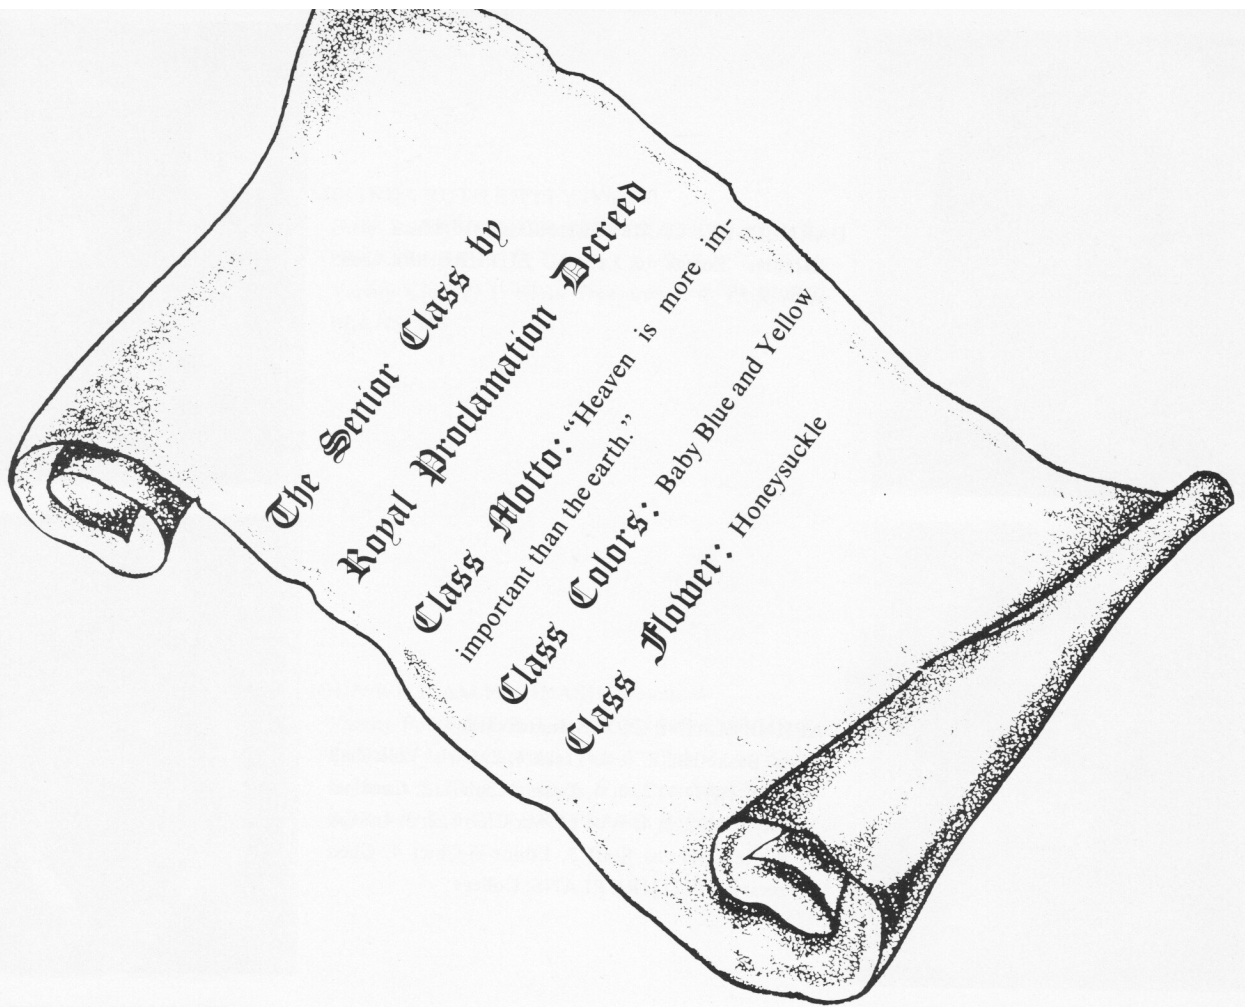 The Senior Class by
Royal Proclamation Decreed
Class Motto: “Heaven is more im-
important than the earth.”
Class Colors: Baby Blue and Yellow
Class Flower: Honeysuckle